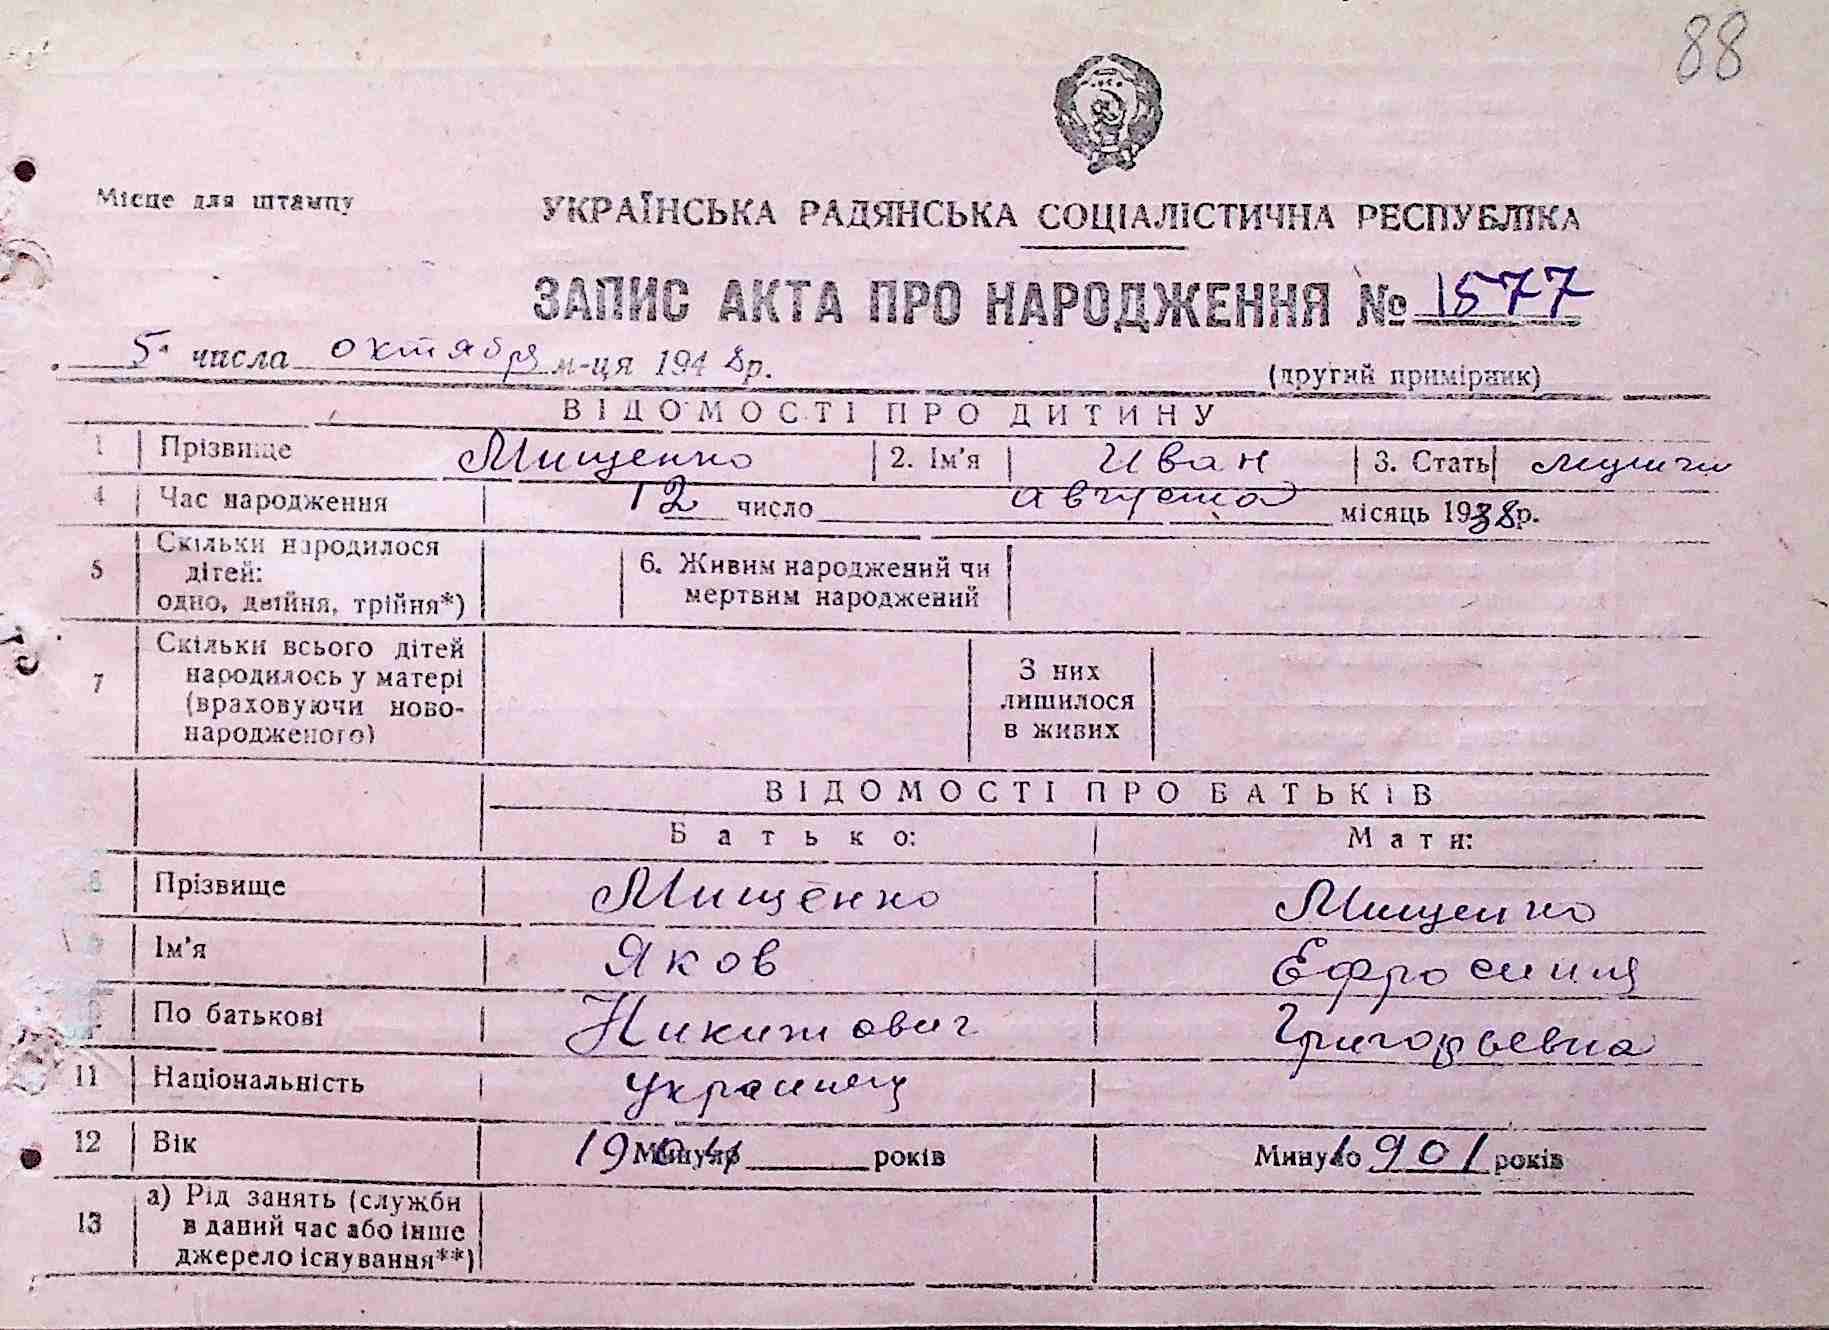 88
Місце для штампу
УКРАЇНСЬКА РАДЯНСЬКА СОЦІАЛІСТИЧНА РЕСПУБЛІКА
ЗАПИС АКТА ПРО НАРОДЖЕННЯ № 1577
5. числа октября м-ця 1948р.
(другий примірник)
ВІДОМОСТІ ПРО ДИТИНУ
1 Прізвище Мищенко 2. Ім'я Иван 3. Стать
4 Час народження 12 число августа місяць 1938р.
5 Скільки народилося дітей: одно, двійня, трійня*) 6. Живим народжений чи мертвим народжений
7 Скільки всього дітей народилось у матері (враховуючи ново-народженого) З них лишилося в живих
ВІДОМОСТІ ПРО БАТЬКІВ
Батько: Мати:
8 Прізвище Мищенко Мищенко
Ім'я Яков Ефросиния
По батькові Никитович Григорьевна
11 Національність украинец
12 Вік Минуло років Минуло 1901 років
13 а) Рід занять (служби в даний час або інше джерело існування**)